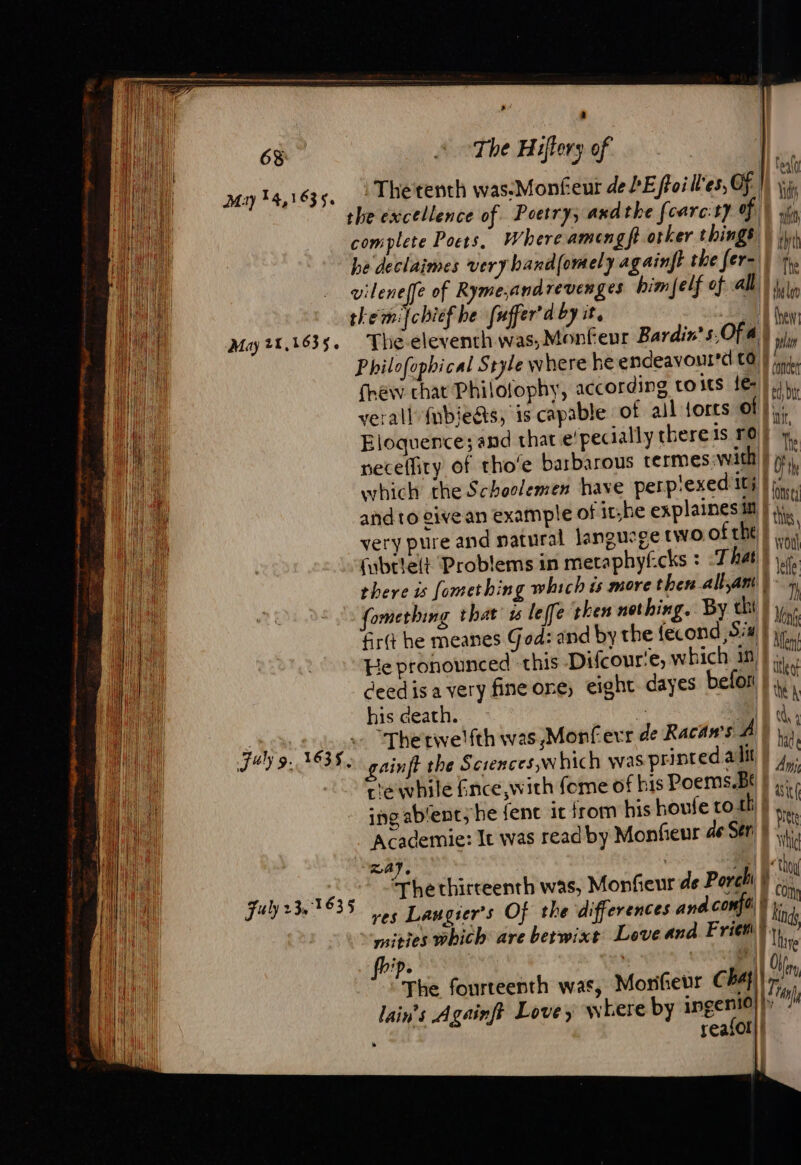 68 The Hiſtory of
May 14, 1635. The tenth was Monſieur de l'Eſtoilles, Of
the excellence of Poetry, and the ſcarcity of
complete Poets. Where amongſt other things
he declaimes very handſomely againſt the ſer-
vileneſſe of Ryme, and revenges himſelf of all
the miſchief he ſuffer'd by it.
May 21, 1635. The eleventh was, Monſieur Bardin's, Of a
Philoſophical Style where he endeavour'd to
ſhew that Philoſophy, according to its ſe-
verall ſubjects, is capable of all ſorts of
Eloquence; and that eſpecially there is no
neceſſity of thoſe barbarous termes with
which the Schoolemen have perplexed it;
and to give an example of it, he explaines in
very pure and natural language two of the
ſubtleſt Problems in metaphyſicks : That
there is ſomething which is more then all, and
ſomething that is leſſe then nothing. By the
firſt he meanes God: and by the ſecond, Sin
He pronounced this Diſcourſe, which in
deed is a very fine one, eight dayes before
his death.
July 9. 1635. The twelfth was, Monſieur de Racan's A
gainſt the Sciences, which was printed a lit
tle while ſince, with ſome of his Poems. Be
ing abſent, he ſent it from his houſe to th
Academie: It was read by Monſieur de Ser
zay.
July 23. 1635 The thirteenth was, Monſieur de Porche
res Laugier's Of the differences and confo
mities which are betwixt Love and Frien
ſhip.
The fourteenth was, Monſieur Chap
lain's Againſt Love, where by ingenio
reaſon